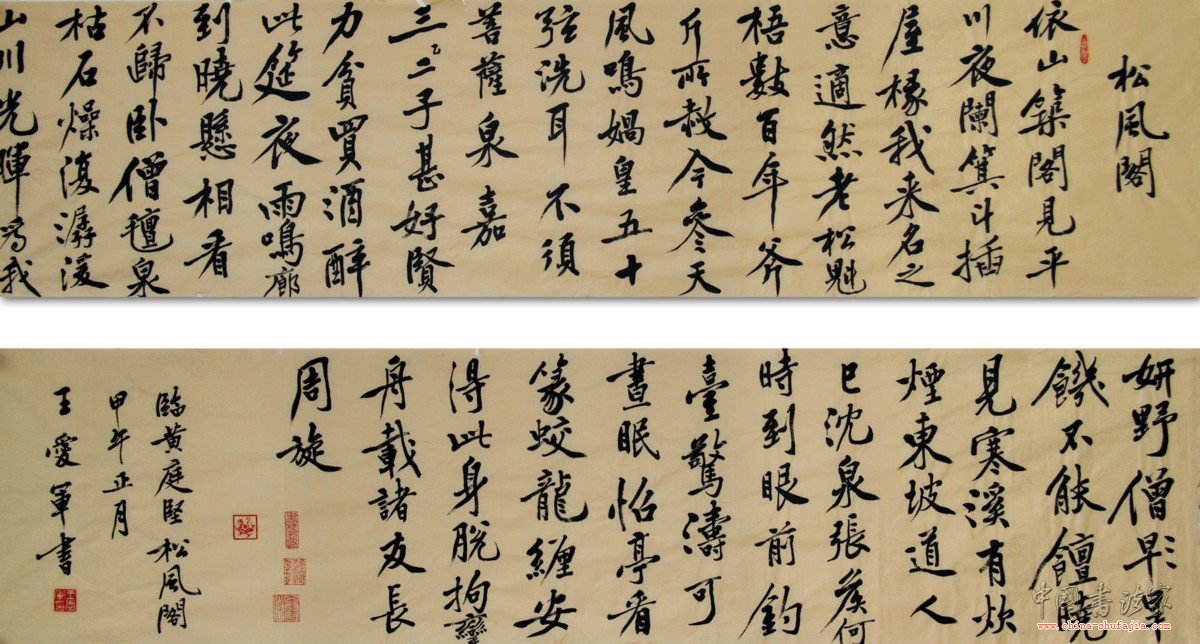 松風閣
依山築閣見平
川夜闌箕斗插
屋椽我来名之
意適然老松魁
梧數百年斧
斤所赦今參天
風鳴媧皇五十
弦洗耳不須
菩薩泉嘉
三二子甚好賢
力貧買酒醉
此筵夜雨鳴廊
到曉懸相看
不歸卧僧氈泉
枯石燥復潺湲
山川光暉爲我
妍野僧早旱
饑不能饘曉
見寒溪有炊
煙東坡道人
已沈泉張矦何
時到眼前釣
臺驚濤可
晝眠怡亭看
篆蛟龍纏安
得此身脱拘攣
舟載諸友長
周旋
臨黄庭堅松風閣
甲午正月
王愛軍書
中國書法家
www.china-shufajia.com